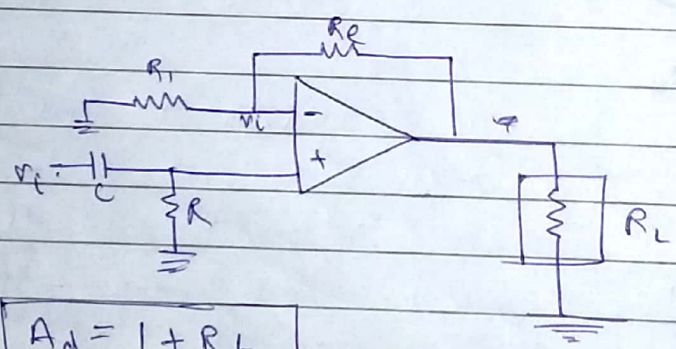 Rf
R1
vi
-
vi
C
+
R
RL
Ad = 1 + R